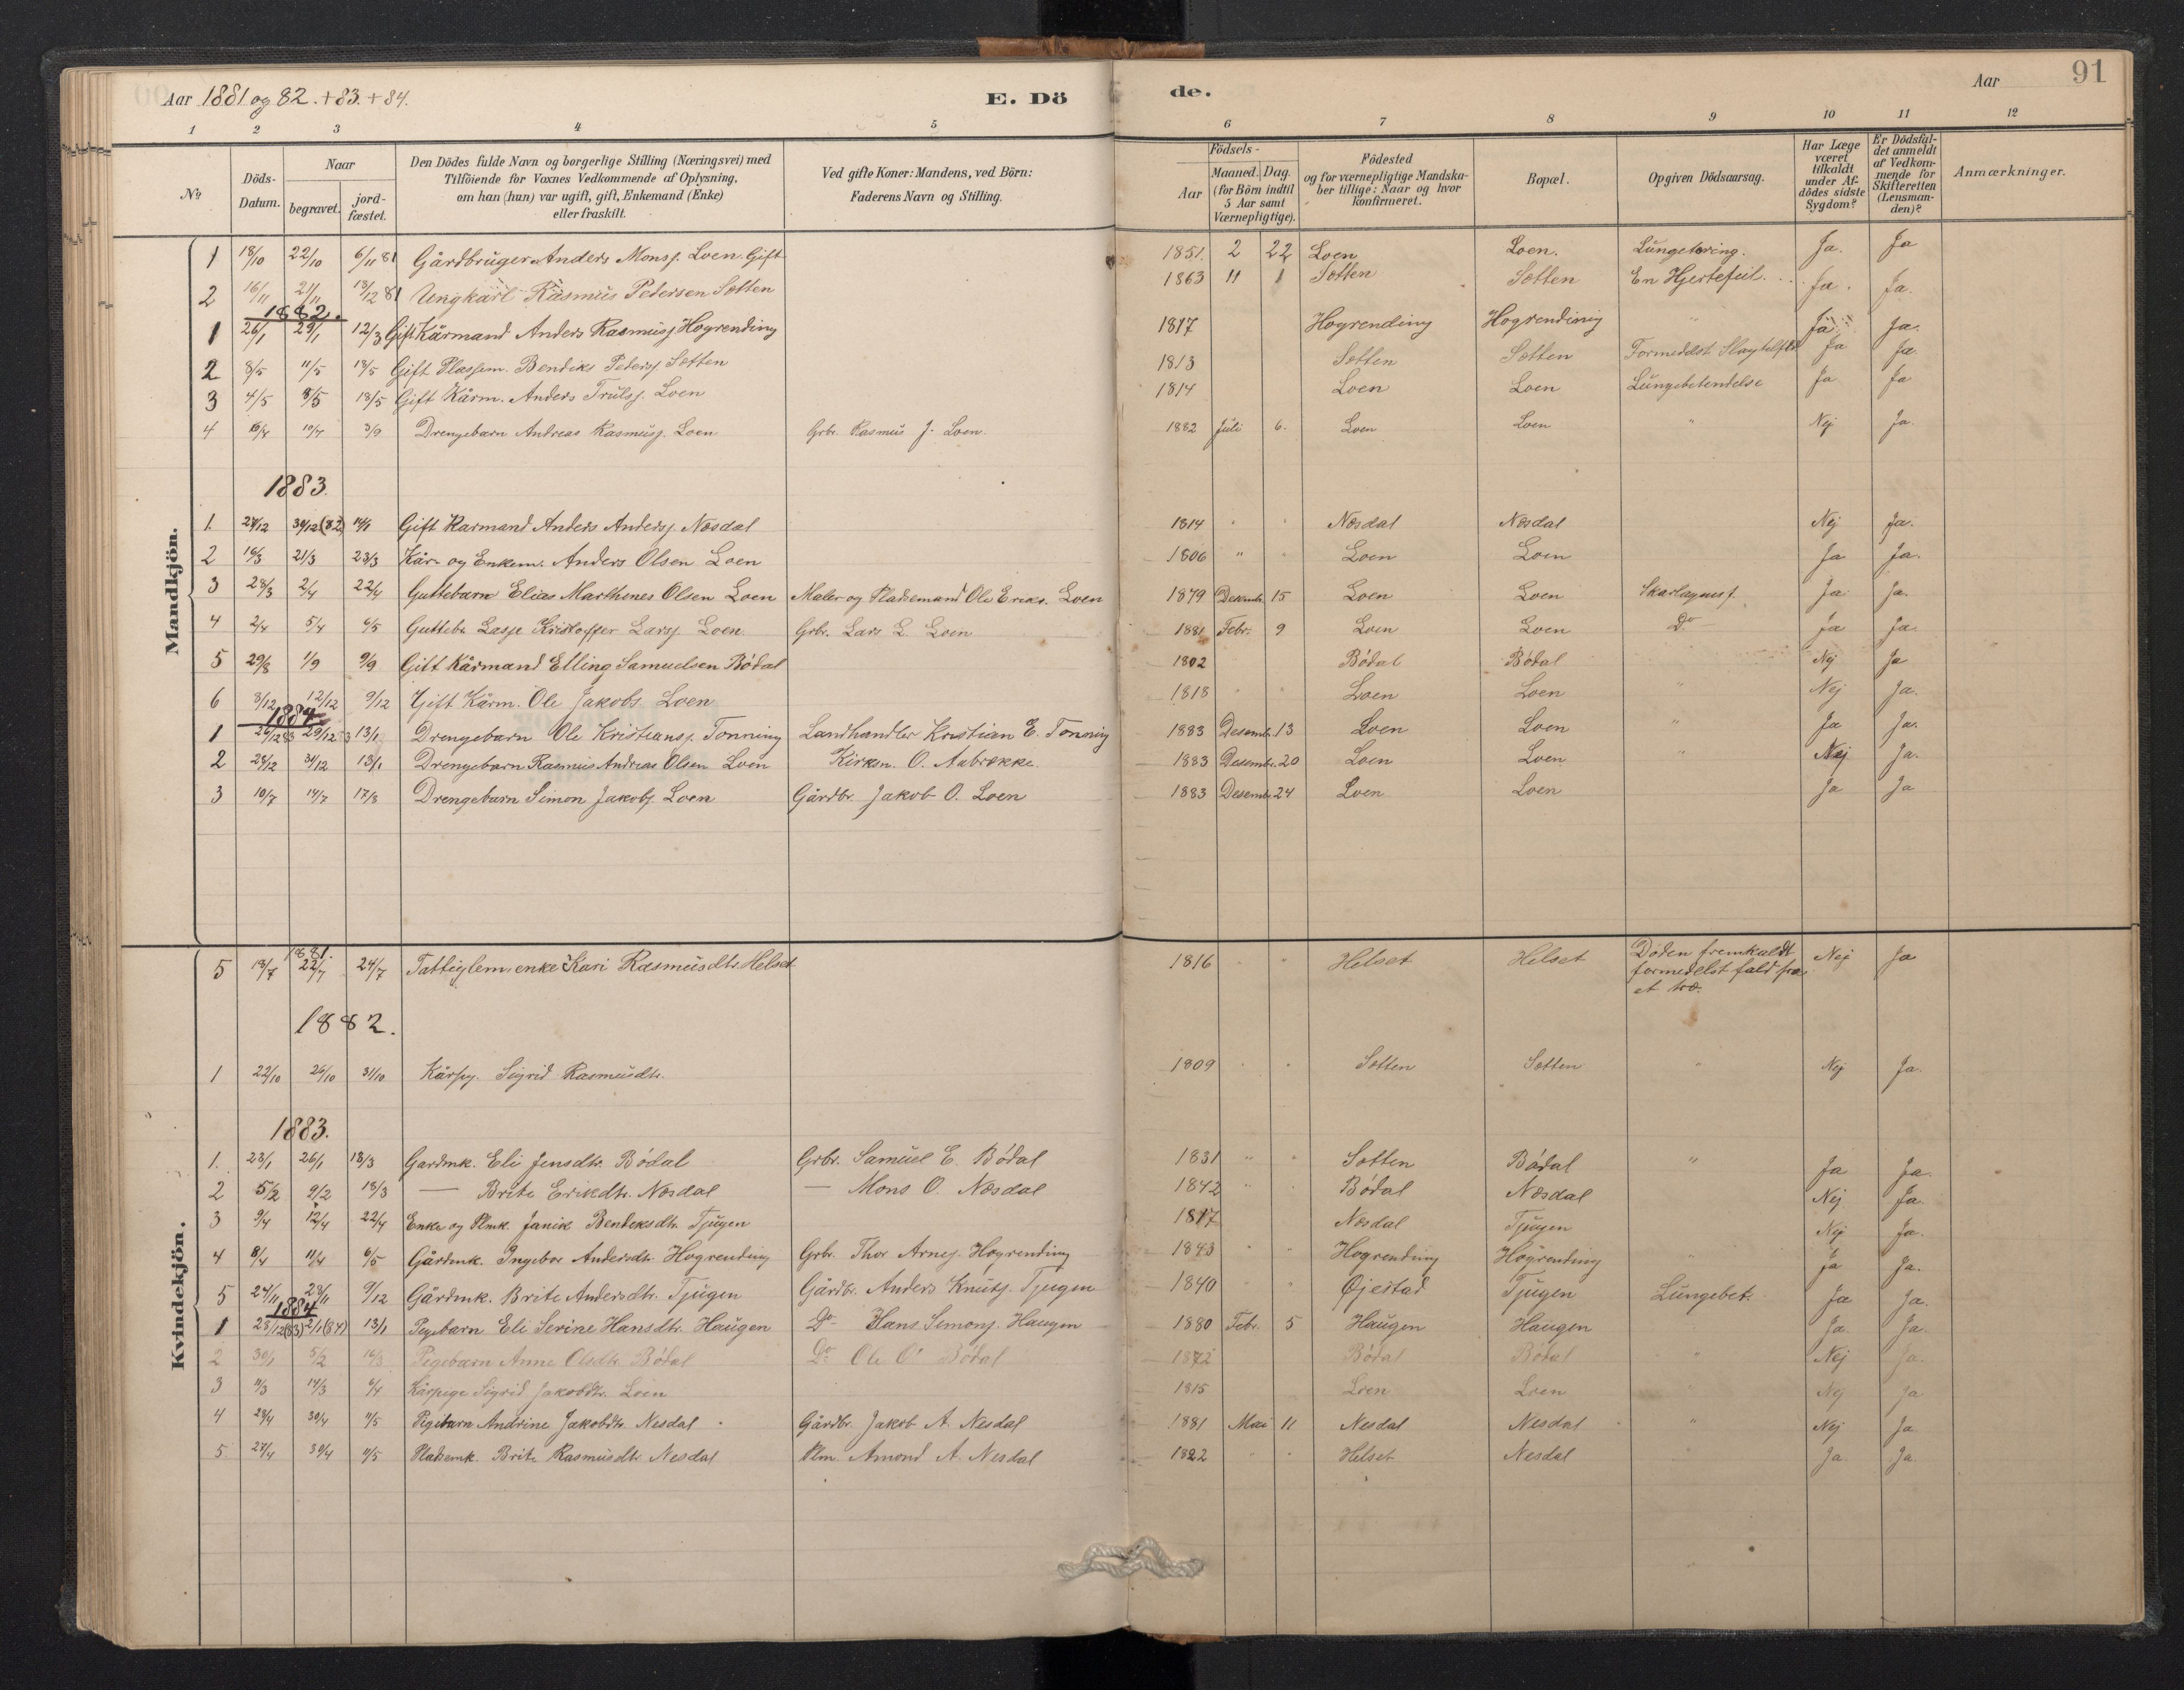 Aar 1881 og 82. + 83. + 84.
E. Dö
de.
Aar
91
1 2 3 4 5 6 7 8 9 10 11 12
No
Döds-Datum.
Naar
begravet.
jord-fæstet.
Den Dödes fulde Navn og borgerlige Stilling (Næringsvei) med
Tilföiende for Voxnes Vedkommende af Oplysning,
om han (hun) var ugift, gift, Enkemand (Enke)
eller fraskilt.
Ved gifte Koner: Mandens, ved Börn:
Faderens Navn og Stilling.
Födsels-
Aar
Maaned. Dag.
(for Börn indtil
5 Aar samt
Værnepligtige).
Födested
og for værnepligtige Mandska-
ber tillige: Naar og hvor
konfirmeret.
Bopæl.
Opgiven Dödsaarsag.
Har Læge
været
tilkaldt
under Af-
dödes sidste
Sygdom?
Er Dödsfal-
det anmeldt
af Vedkom-
mende for
Skifteretten
(Lensman-
den)?
Anmærkninger.
Mandkjön.
1 18/10 22/10 6/11 81 Gårdbruger Anders Monsj. Loen. Gift 1851. 2 22 Loen Loen. Lungetæring. Ja. Ja
2 16/11 21/11 18/12 81 Ungkarl Rasmus Petersen Sætten 1863 11 1 Sætten Sætten En Hjertefeil. Ja. Ja.
1882.
1 26/1 29/1 12/3 Gift Kårmand Anders Rasmusj. Hogrending 1817 Hogrending Hogrending " Ja Ja.
2 8/5 11/5 18/5 Gift Plassem. Bendiks Petersj. Sætten 1813 Sætten Sætten Formedelst Ja Ja.
3 4/5 8/5 18/5 Gift Kårm. Anders Trulsj. Loen 1814 Loen Loen Lungebetendelse Ja Ja
4 3/9 Drengebarn Andreas Rasmusj. Loen Grbr. Rasmus J. Loen. 1882 Juli 6. Loen Loen " Nej Ja.
1883.
1. 27/12 30/12 (82) 14/1 Gift Karmand Anders Andersj. Nesdal 1814 " " Nesdal Nesdal Nej Ja.
2 16/3 21/3 23/3 Kår- og Enkem. Anders Olsen Loen 1806 " " Loen Loen Ja Ja.
3 28/3 2/4 22/4 Guttebarn Elias Marthenes Olsen Loen Maler og Pladsemand Ole Eriks. Loen 1879 Desemb. 15 Loen Loen Skarlagensf. Ja Ja.
4 2/4 5/4 6/5 Guttebr. Lasse Kristoffer Larsj. Loen. Grbr. Lars L. Loen 1881 Febr. 9 Loen Loen Do Ja Ja.
5 29/8 1/9 9/9 Gift Kårmand Elling Samuelsen Bødal 1802 Bødal Bødal " Nej Ja
6 3/12 12/12 9/12 Gift Kårm. Ole Jakobs. Loen 1818 " " Loen Loen " Nej Ja.
1884
1 26/12 83 29/12 83 13/1 Drengebarn Ole Kristiansj. Tonning Landhandler Kristian E. Tonning 1883 Desemb. 13 Loen Loen " Ja Ja.
2 28/12 31/12 13/1 Drengebarn Rasmus Andreas Olsen Loen Kirkesn. O. Aabrekke. 1883 Desemb. 20 Loen Loen " Nej Ja.
3 10/7 14/7 17/8 Drengebarn Simon Jakobj. Loen Gårdbr. Jakob O. Loen 1883 Desemb. 24 Loen Loen Ja Ja
Kvindekjön.
1881.
5 18/7 22/7 24/7 Fattiglem, enke Kari Rasmusdtr. Helset 1816 " " Helset Helset Døden fremkaldt
formedelst fald fra
et træ. Nej Ja
1882.
1 22/10 26/10 31/10 Kårpg. Sigrid Rasmusdtr. 1809 " " Sætten Sætten " Nej Ja.
1883.
1. 23/1 26/1 18/3 Gardmk. Eli Jensdtr. Bødal Grbr. Samuel E. Bødal 1831 " " Sætten Bødal " Ja Ja.
2 5/2 9/2 18/3 — Brite Eriksdtr. Nesdal — Mons O. Nesdal 1842 " " Bødal Nesdal Nej Ja.
3 9/4 12/4 22/4 Enke og Plmk. Janike Bendeksdtr. Tjugen 1817 Nesdal Tjugen Nej Ja.
4 8/4 11/4 6/5 Gårdmk. Ingebor Andersdtr. Hogrending Grbr. Thor Arnej. Hogrending 1843 " " Hogrending Hogrending " Ja Ja.
5 24/11 28/11 9/12 Gårdmk. Brite Andersdtr. Tjugen Gårdbr. Anders Knutsj. Tjugen 1840 " " Øjestad Tjugen Lungebet. Ja Ja.
1884
1 28/12 (83) 2/1 (84) 13/1 Pigebarn Eli Serine Hansdtr. Haugen Do Hans Simonj. Haugen 1880 Febr. 5 Haugen Haugen Ja. Ja.
2 30/1 5/2 16/3 Pigebarn Anne Olsdtr. Bødal Do Ole O. Bødal 1872 Bødal Bødal " Nej Ja.
3 11/3 14/3 6/4 Kårpige Sigrid Jakobdtr. Loen 1815 Loen Loen " Nej Ja
4 28/4 30/4 11/5 Pigebarn Andrine Jakobdtr. Nesdal Gårdbr. Jakob A. Nesdal 1881 Mai 11 Nesdal Nesdal " Nej Ja
5. 27/4 30/4 11/5 Pladsemk. Brite Rasmusdtr. Nesdal Plm. Amond A. Nesdal 1822 " " Helset Nesdal Ja. Ja.